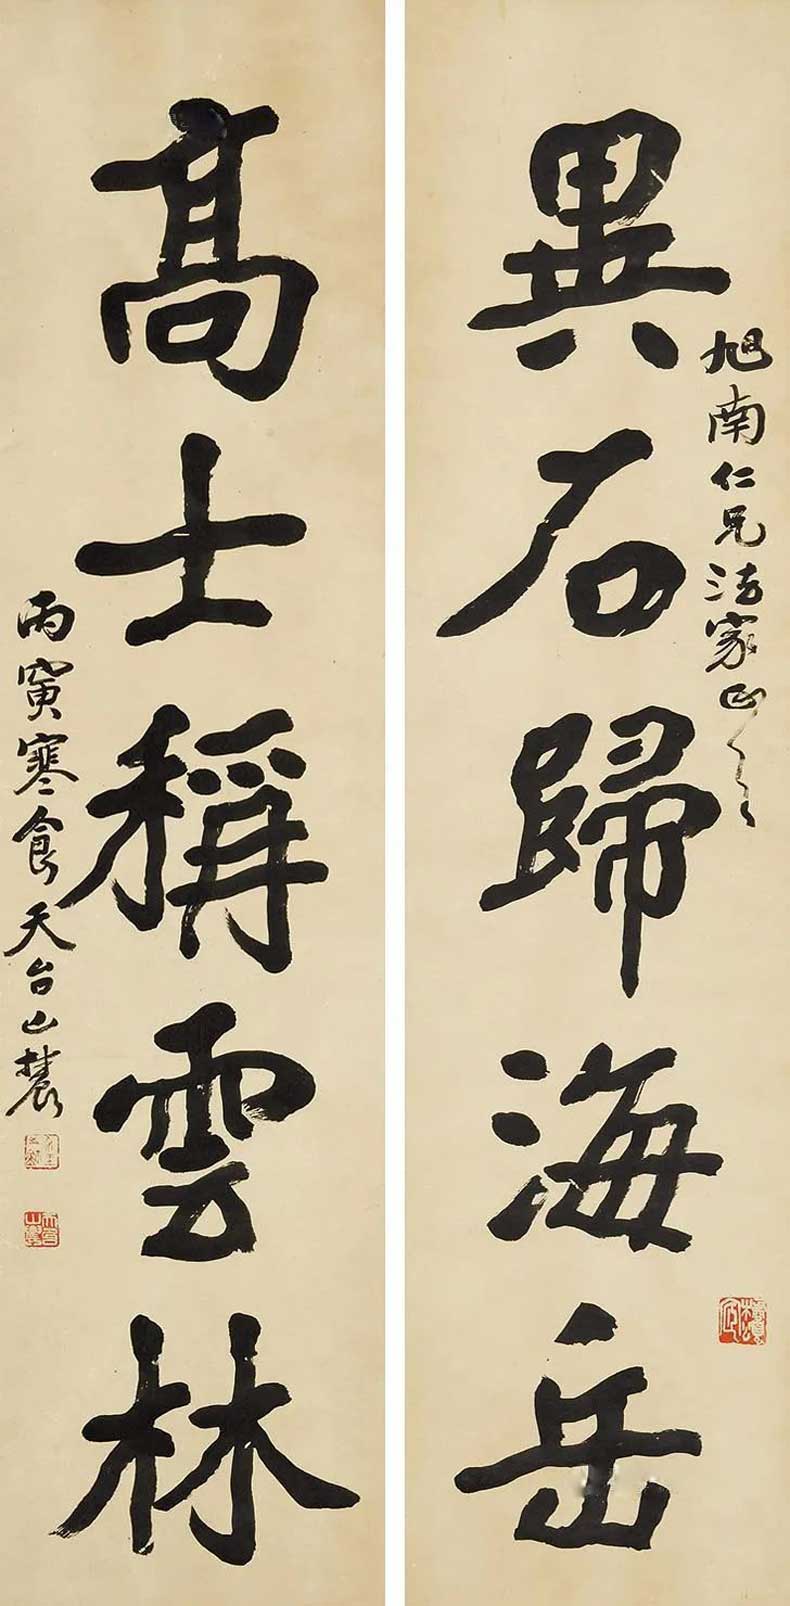 異石歸海岳
旭南仁兄法家正之
高士稱雲林
丙寅寒食天台山農